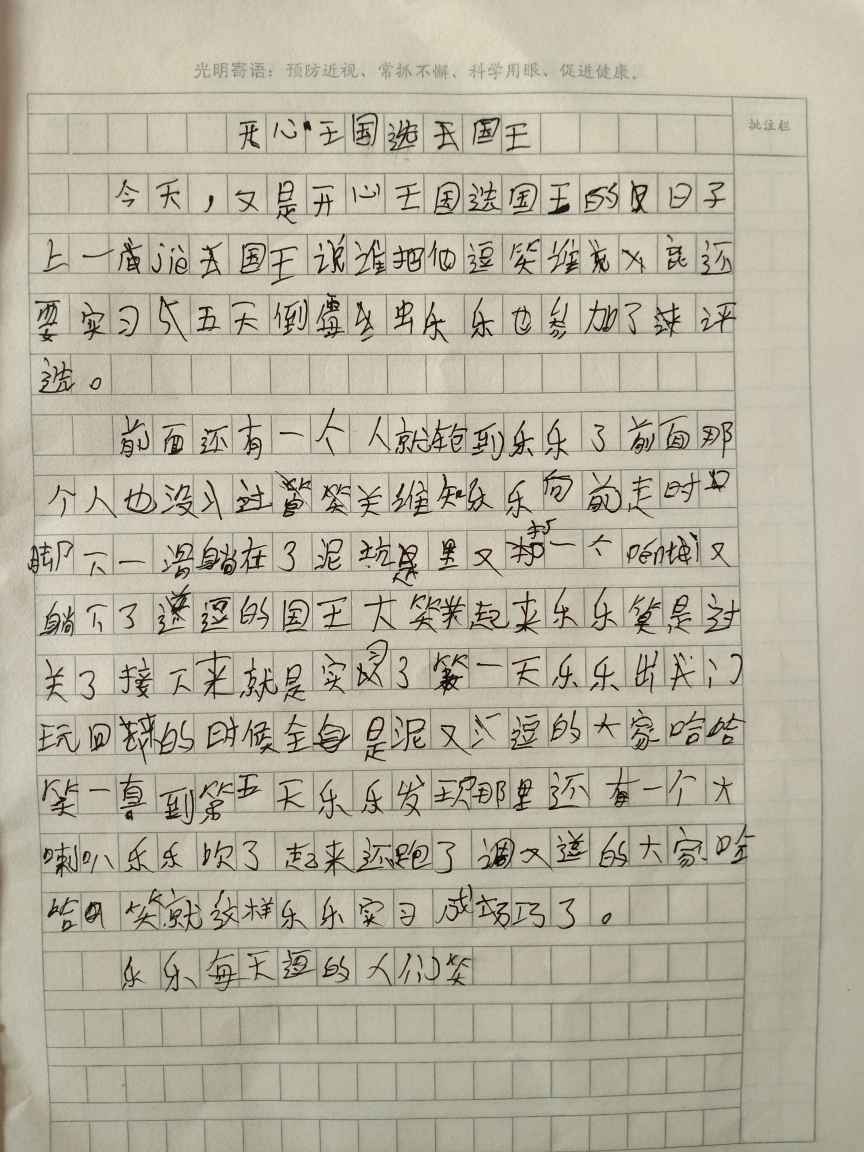 光明寄语：预防近视、常抓不懈、科学用眼、促进健康。
批注栏
开心王国选国王
今天，又是开心王国选国王的日子
上一届国王说谁把他逗笑谁还
要实习五天倒霉虫乐乐也参加了评
选。
前面还有一个人就轮到乐乐了前面那
个人也没过关谁知乐乐向前走时
脚下一滑躺在了泥坑里又一个又
躺下了逗的国王大笑起来乐乐算是过
关了接下来就是实习了一天乐乐出门
玩回来的时候全身是泥又逗的大家哈哈
笑一直到第五天乐乐发现那里还有一个大
喇叭乐乐吹了起来还跑了调又逗的大家哈
哈笑就这样乐乐实习成功了。
乐乐每天逗的人们笑